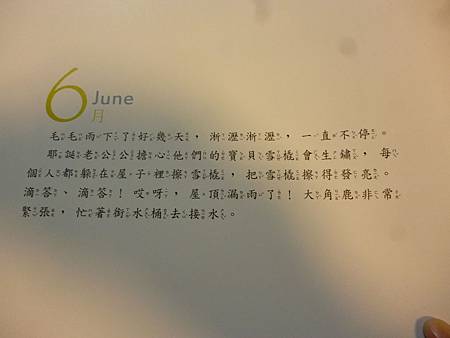 6 June
月
毛毛雨下了好幾天，淅瀝淅瀝，一直不停。
耶誕老公公擔心他們的寶貝雪橇會生鏽，每
個人都躲在屋子裡擦雪橇，把雪橇擦得發亮。
滴答、滴答！哎呀，屋頂漏雨了！大角鹿非常
緊張，忙著銜水桶去接水。